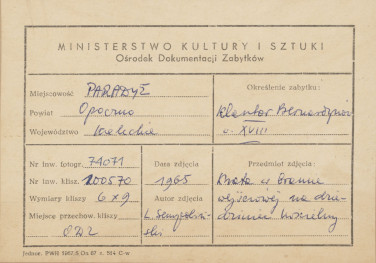 MINISTERSTWO KULTURY I SZTUKI
Ośrodek Dokumentacji Zabytków
Miejscowość PARADYŻ
Powiat Opoczno
Województwo kieleckie
Określenie zabytku:
Klasztor Bernardynów
XVIII
Nr inw. fotogr. 74071
Nr inw. klisz. 100570
Wymiary kliszy 6x9
Miejsce przechow. kliszy
ODZ
Data zdjęcia
1965
Autor zdjęcia
L. Sempoliński
Przedmiot zdjęcia:
Krata w bramie
wejściowej na dzie-
dziniec kościelny
Jednor. PWH 1967.